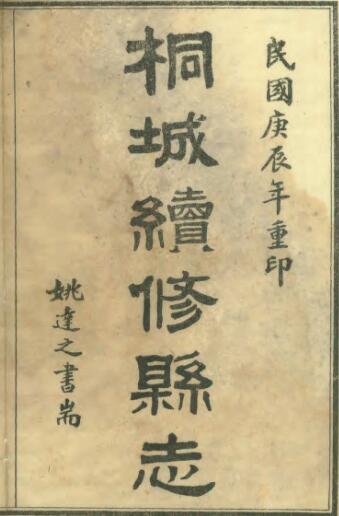 民國庚辰年重印
桐城續修縣志
姚達之書耑